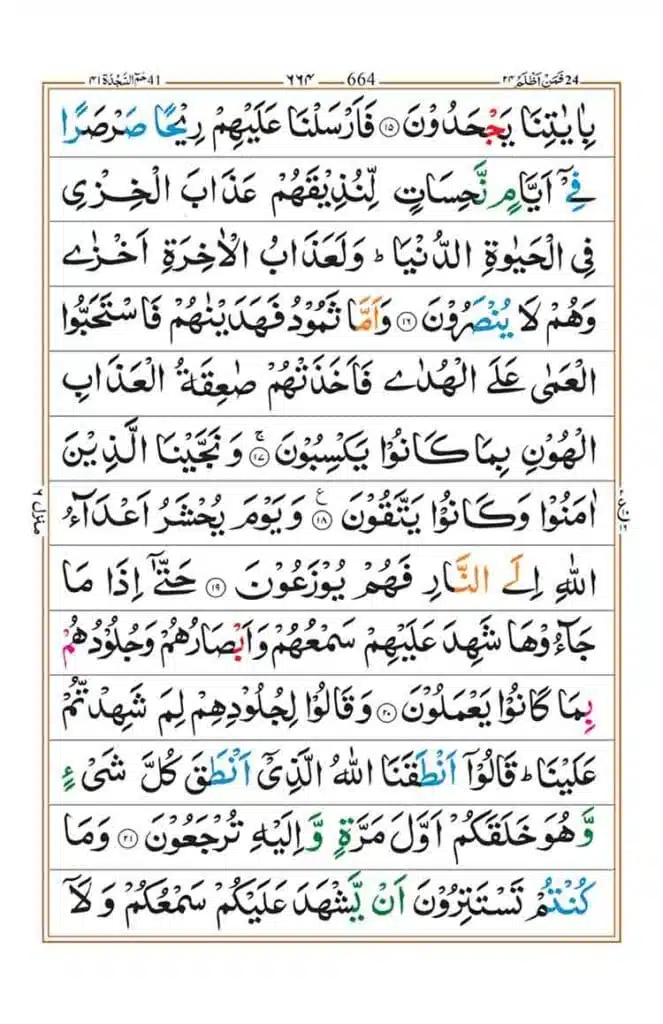 24 فَمَنْ اَظْلَمُ ٢٤ 664 ٦٦٤ 41 حٰمٓ السَّجْدَة ٤١
بِاٰيٰتِنَا يَجْحَدُوْنَ ۝١٥ فَاَرْسَلْنَا عَلَيْهِمْ رِيْحًا صَرْصَرًا
فِيْۤ اَيَّامٍ نَّحِسَاتٍ لِّنُذِيْقَهُمْ عَذَابَ الْخِزْيِ
فِي الْحَيٰوةِ الدُّنْيَا ؕ وَلَعَذَابُ الْاٰخِرَةِ اَخْزٰى
وَهُمْ لَا يُنْصَرُوْنَ ۝١٦ وَاَمَّا ثَمُوْدُ فَهَدَيْنٰهُمْ فَاسْتَحَبُّوا
الْعَمٰى عَلَى الْهُدٰى فَاَخَذَتْهُمْ صٰعِقَةُ الْعَذَابِ
الْهُوْنِ بِمَا كَانُوْا يَكْسِبُوْنَ ۝١٧ۚ وَنَجَّيْنَا الَّذِيْنَ
اٰمَنُوْا وَكَانُوْا يَتَّقُوْنَ ۝١٨ ع وَيَوْمَ يُحْشَرُ اَعْدَآءُ
اللّٰهِ اِلَى النَّارِ فَهُمْ يُوْزَعُوْنَ ۝١٩ حَتّٰۤى اِذَا مَا
جَآءُوْهَا شَهِدَ عَلَيْهِمْ سَمْعُهُمْ وَاَبْصَارُهُمْ وَجُلُوْدُهُمْ
بِمَا كَانُوْا يَعْمَلُوْنَ ۝٢٠ وَقَالُوْا لِجُلُوْدِهِمْ لِمَ شَهِدْتُّمْ
عَلَيْنَا ؕ قَالُوْۤا اَنْطَقَنَا اللّٰهُ الَّذِيْۤ اَنْطَقَ كُلَّ شَيْءٍ
وَّهُوَ خَلَقَكُمْ اَوَّلَ مَرَّةٍ وَّاِلَيْهِ تُرْجَعُوْنَ ۝٢١ وَمَا
كُنْتُمْ تَسْتَتِرُوْنَ اَنْ يَّشْهَدَ عَلَيْكُمْ سَمْعُكُمْ وَلَاۤ
منزل ٦